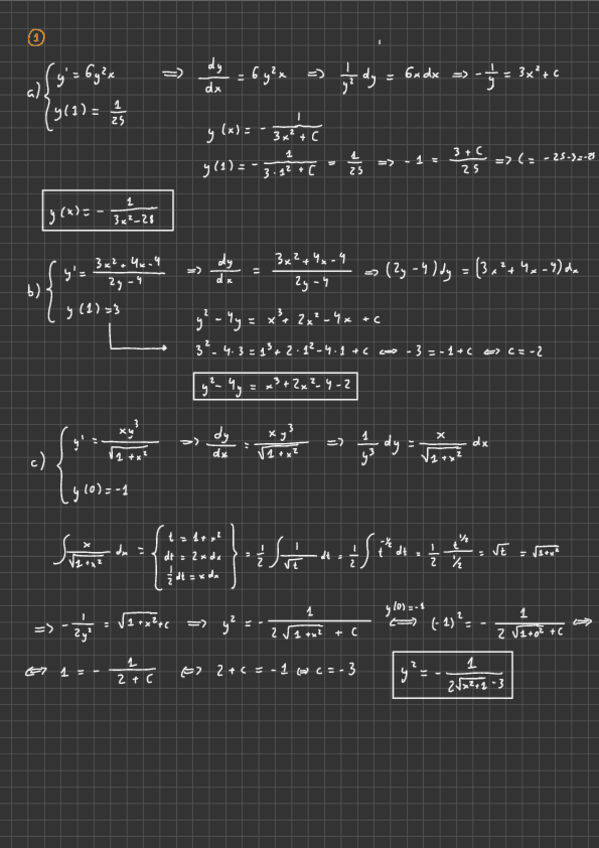 1
a) { y' = 6y²x ⟹ dy/dx = 6y²x ⟹ 1/y² dy = 6x dx ⟹ -1/y = 3x² + c
y(1) = 1/25
y(x) = - 1/(3x² + C)
y(1) = - 1/(3·1² + C) = 1/25 ⟹ -1 = (3 + C)/25 ⟹ C = -25-3=-28
y(x) = - 1/(3x²-28)
b) { y' = (3x² + 4x - 4)/(2y - 4) ⟹ dy/dx = (3x² + 4x - 4)/(2y - 4) ⟹ (2y - 4) dy = (3x² + 4x - 4) dx
y(1) = 3
y² - 4y = x³ + 2x² - 4x + c
3² - 4·3 = 1³ + 2·1² - 4·1 + c ⟺ -3 = -1 + c ⟺ c = -2
y² - 4y = x³ + 2x² - 4 - 2
c) { y' = xy³/√(1+x²) ⟹ dy/dx = xy³/√(1+x²) ⟹ 1/y³ dy = x/√(1+x²) dx
y(0) = -1
∫ x/√(1+x²) dx = { t = 1+x² dt = 2x dx 1/2 dt = x dx } = 1/2 ∫ 1/√t dt = 1/2 ∫ t^(-1/2) dt = 1/2 t^(1/2)/(1/2) = √t = √(1+x²)
⟹ - 1/(2y²) = √(1+x²) + c ⟹ y² = - 1/(2√(1+x²) + C) y(0)=-1 ⟺ (-1)² = - 1/(2√(1+0²) + C) ⟺
⟺ 1 = - 1/(2 + C) ⟺ 2 + c = -1 ⟺ c = -3 y² = - 1/(2√(x²+1) - 3)